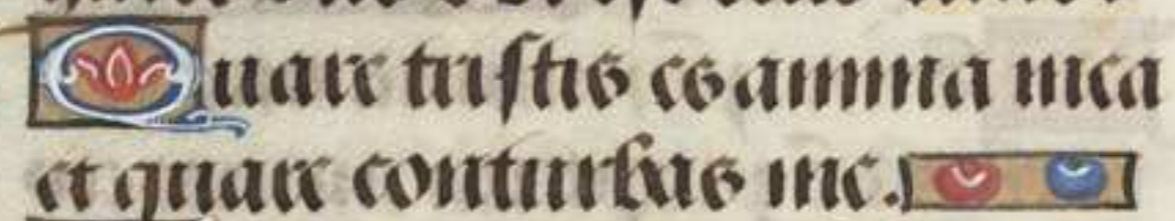 Quare tristis es anima mea
et quare conturbas me.